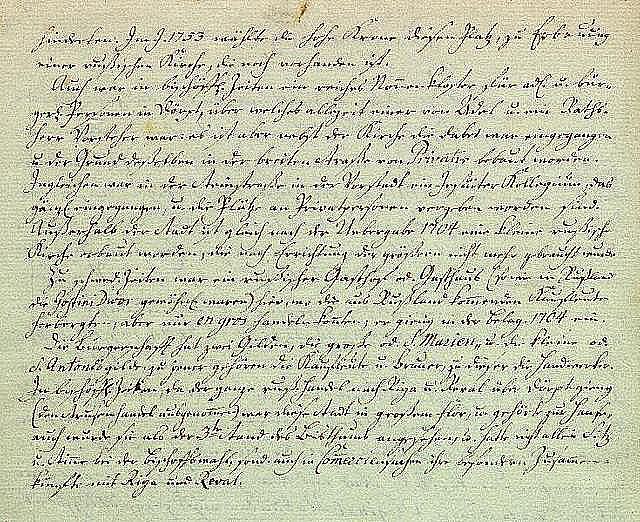 hinderten. Im J. 1753 wählte die hohe Krone diesen Platz, zu Erbauung
einer rußischen Kirche, die noch vorhanden ist.
Auch war in bischöfl. Zeiten ein reiches Nonnenkloster für adl. u. bür-
gerl. Personen in Dörpt, über welches allezeit einer von Adel u. ein Raths-
herr Vorsteher war: es ist aber nebst der Kirche die dabei war eingegangen
u. der Grund desselben in der breiten Straße von Privatis bebaut worden.
Ingleichen war in der Straße in der Vorstadt ein Jesuiter Kollegium, das
gänzl. eingegangen, u. die Plätze an Privatpersonen vergeben worden sind.
Außerhalb der Stadt ist gleich nach der Uebergabe 1704 eine kleine rußische
Kirche erbaut worden, die nach Errichtung der größern nicht mehr gebraucht wurde.
Zu schwed. Zeiten war ein rußischer Gasthof od. Gasthaus
die Gostin Dwor hier, wo die aus Rußland kommenden Kaufleute
herbergten, aber nur en gros handeln konnten; er gieng in der Belag. 1704 ein.
Die Bürgerschaft hat zwei Gilden, die große od. S. Marien, u. die kleine od.
S. Antonigilde; zu jener gehören die Kaufleute u. Brauer, zu dieser die Handwerker.
In bischöfl. Zeiten, da der ganze russ. Handel nach Riga u. Reval über Dörpt gieng
(den ausgenommen) war diese Stadt in großem Flor, u. gehörte zur Hansa,
auch wurde sie als der 3te Stand des Bisthums angesehen, u. hatte nicht allein Sitz
u. Stimme bei der Bischofswahl, sond. auch in Commerciensachen ihre besondern Zusamen-
künfte mit Riga und Reval.